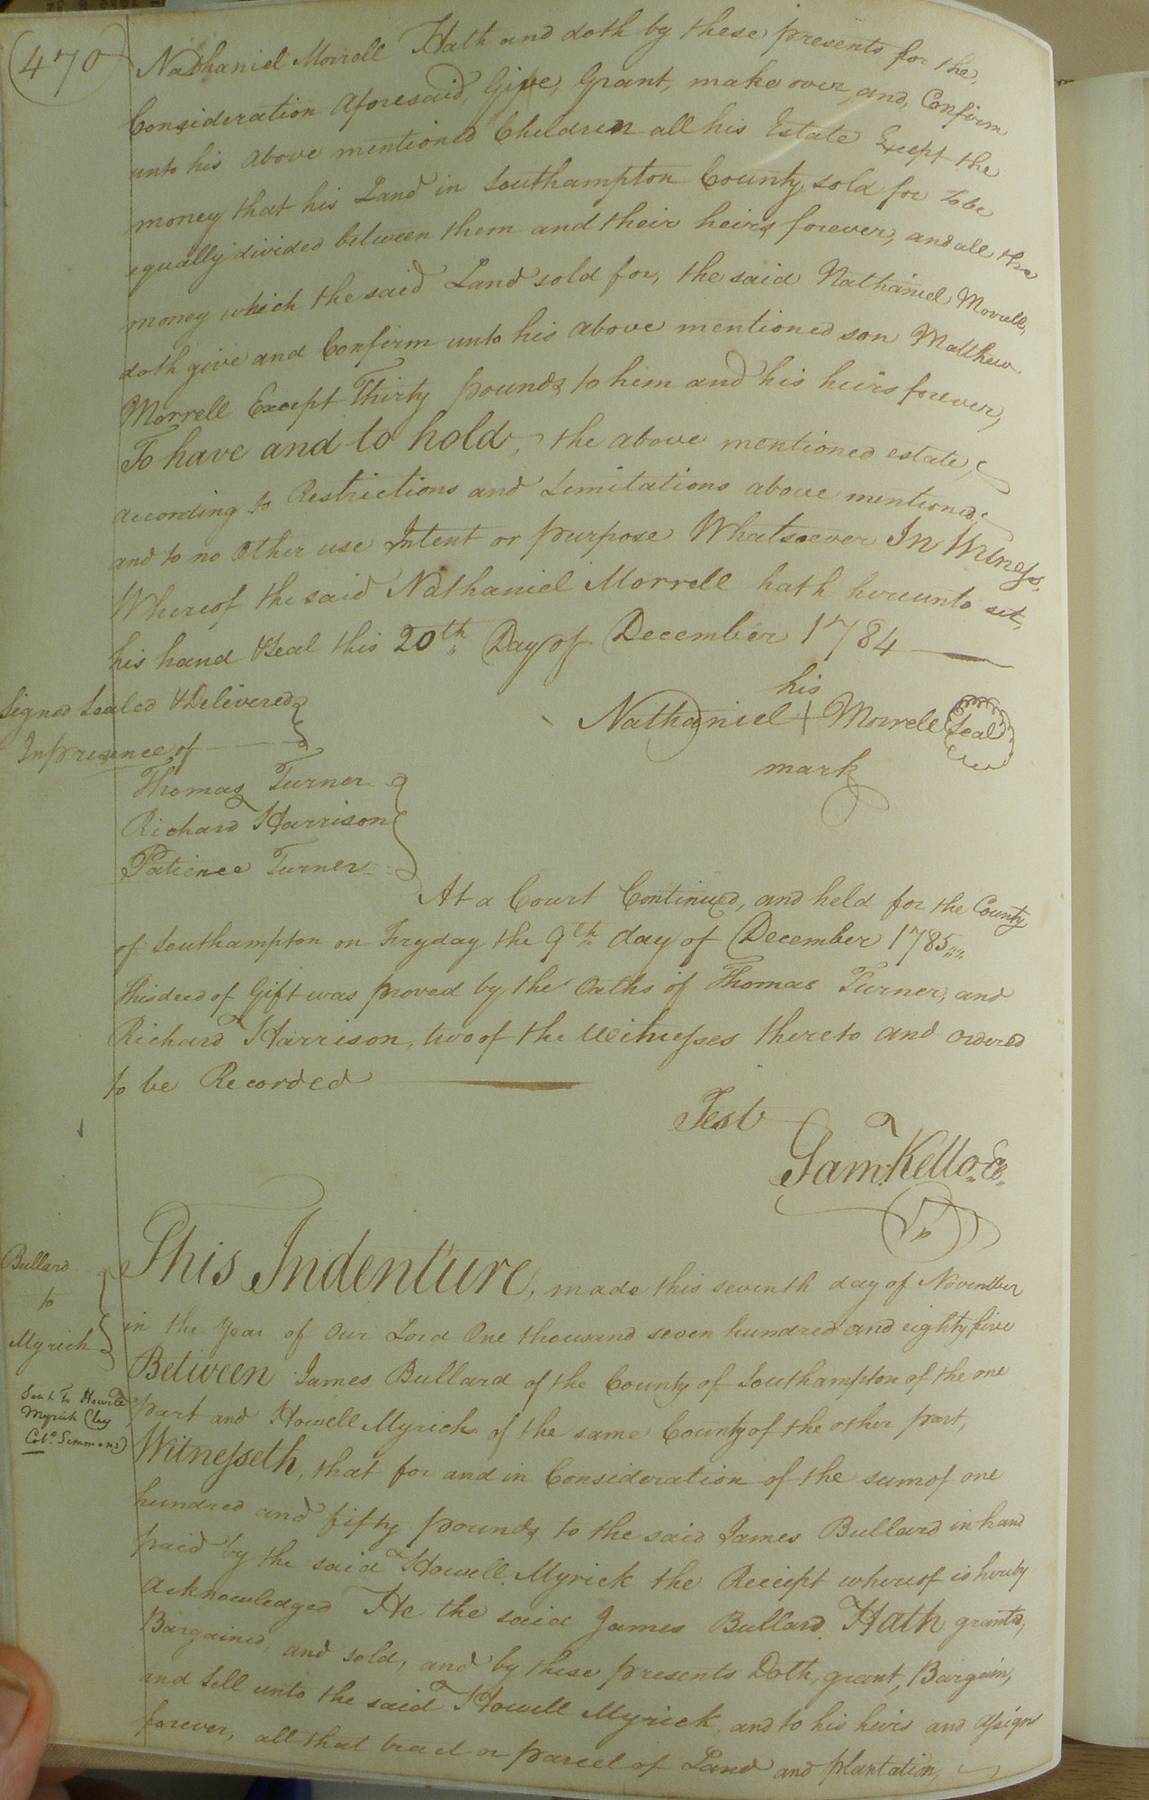 (470)
Nathaniel Morrell Hath and doth by these presents for the,
Consideration Aforesaid, Give, Grant, make over, and, Confirm
unto his above mentioned Children all his Estate Except the
money that his Land in Southampton County sold for to be
equally divided between them and their heirs forever, and all the
money which the said Land sold for, the said Nathaniel Morrell,
doth give and Confirm unto his above mentioned son Matthew
Morrell Except Thirty pounds to him and his heirs forever,
To have and to hold, the above mentioned estate,
according to Restrictions and Limitations above mentioned
and to no Other use Intent or purpose Whatsoever In Witness,
Whereof the said Nathaniel Morrell hath hereunto set,
his hand & Seal this 20th Day of December 1784
Signed Sealed & Delivered
In presence of
his
Nathaniel + Morrell Seal
mark
Thomas Turner
Richard Harrison
Patience Turner
At a Court Continued, and held for the County
of Southampton on Fryday the 9th day of December 1785
this deed of Gift was proved by the Oaths of Thomas Turner, and
Richard Harrison, two of the Witnesses thereto and ordered
to be Recorded
Test
Sam. Kello
Bullard
to
Myrick
Sent To Howell
Myrick (by
Colo. Simmons)
This Indenture, made this seventh day of November
in the Year of Our Lord One thousand seven hundred and eighty five
Between James Bullard of the County of Southampton of the one
part and Howell Myrick of the same County of the other part,
Witnesseth, that for and in Consideration of the sum of one
hundred and fifty pounds to the said James Bullard in hand
paid by the said Howell Myrick the Receipt whereof is hereby
acknowledged He the said James Bullard Hath granted,
Bargained, and sold, and by these presents Doth, grant, Bargain,
and Sell unto the said Howell Myrick, and to his heirs and Assigns
forever, all that tract or parcel of Land and plantation,